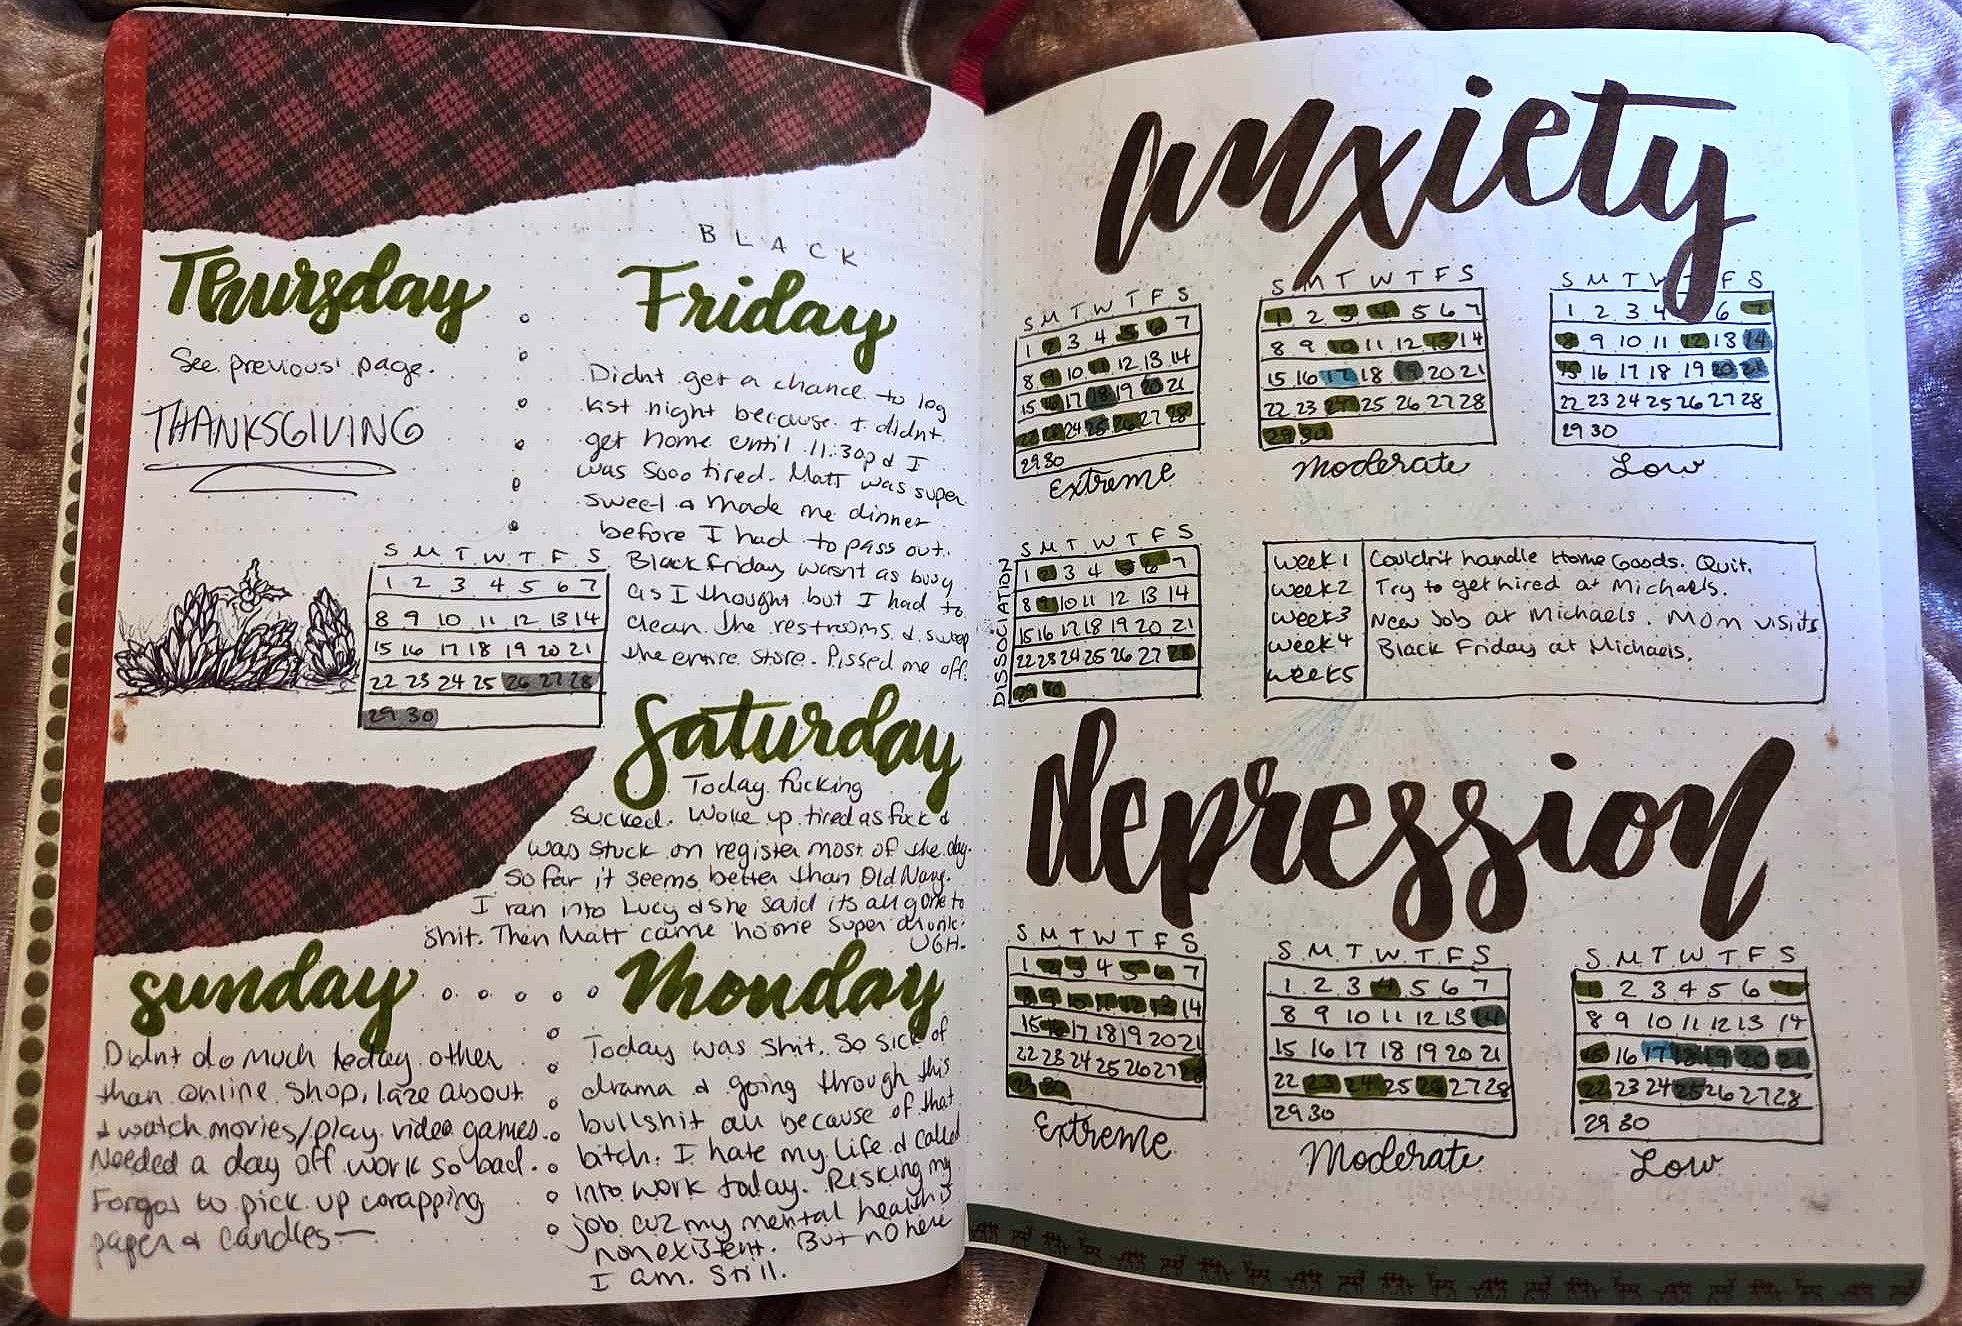 Thursday
See previous page.
THANKSGIVING
S M T W T F S
1 2 3 4 5 6 7
8 9 10 11 12 13 14
15 16 17 18 19 20 21
22 23 24 25 26 27 28
29 30
BLACK
Friday
Didnt get a chance to log
last night because I didnt
get home until 11:30p & I
was sooo tired. Matt was super
sweet & made me dinner
before I had to pass out.
Black Friday wasnt as busy
as I thought but I had to
clean the restrooms & sweep
the entire store. Pissed me off.
Saturday
Today fucking
sucked. Woke up tired as fuck &
was stuck on register most of the day.
So far it seems better than Old Navy.
I ran into Lucy & she said its all gone to
shit. Then Matt came home super drunk.
UGH.
Sunday
Didnt do much today other
than online shop, laze about
& watch movies/play video games.
Needed a day off work so bad.
Forgot to pick up wrapping
paper & candles—
Monday
Today was shit. So sick of
drama & going through this
bullshit all because of that
bitch. I hate my life & called
into work today. Risking my
job cuz my mental health is
nonexistent. But no here
I am. Still.
anxiety
S M T W T F S
1 2 3 4 5 6 7
8 9 10 11 12 13 14
15 16 17 18 19 20 21
22 23 24 25 26 27 28
29 30
Extreme
S M T W T F S
1 2 3 4 5 6 7
8 9 10 11 12 13 14
15 16 17 18 19 20 21
22 23 24 25 26 27 28
29 30
Moderate
S M T W F S
1 2 3 4 6 7
8 9 10 11 12 13 14
15 16 17 18 19 20 21
22 23 24 25 26 27 28
29 30
Low
DISSOCIATION
S M T W T F S
1 2 3 4 5 6 7
8 9 10 11 12 13 14
15 16 17 18 19 20 21
22 23 24 25 26 27 28
29 30
week 1 Couldn't handle Home Goods. Quit.
week 2 Try to get hired at Michaels.
week 3 New Job at Michaels. Mom visits
week 4 Black Friday at Michaels.
week 5
depression
S M T W T F S
1 2 3 4 5 6 7
8 9 10 11 12 13 14
15 16 17 18 19 20 21
22 23 24 25 26 27 28
29 30
Extreme
S M T W T F S
1 2 3 4 5 6 7
8 9 10 11 12 13 14
15 16 17 18 19 20 21
22 23 24 25 26 27 28
29 30
Moderate
S M T W T F S
1 2 3 4 5 6 7
8 9 10 11 12 13 14
15 16 17 18 19 20 21
22 23 24 25 26 27 28
29 30
Low